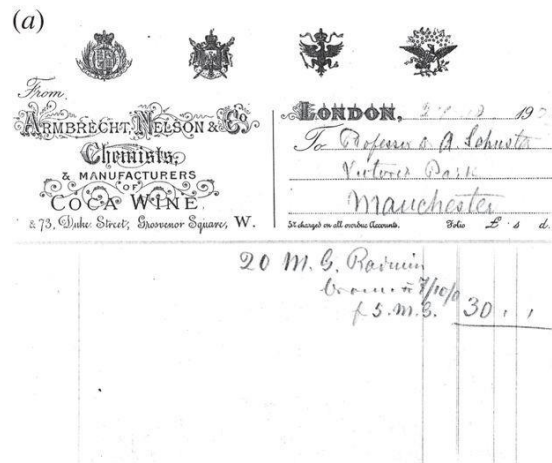 (a)
From
ARMBRECHT, NELSON & Co.
Chemists,
& MANUFACTURERS
OF
COCA WINE
& 73, Duke Street, Grosvenor Square, W.
LONDON, 190
To Professor A. Schuster
Victoria Park
Manchester
5% charged on all overdue Accounts. Folio £ s d.
20 M.G. Radium
Bromide 7/10/0
f 5. M.G. 30 , ,